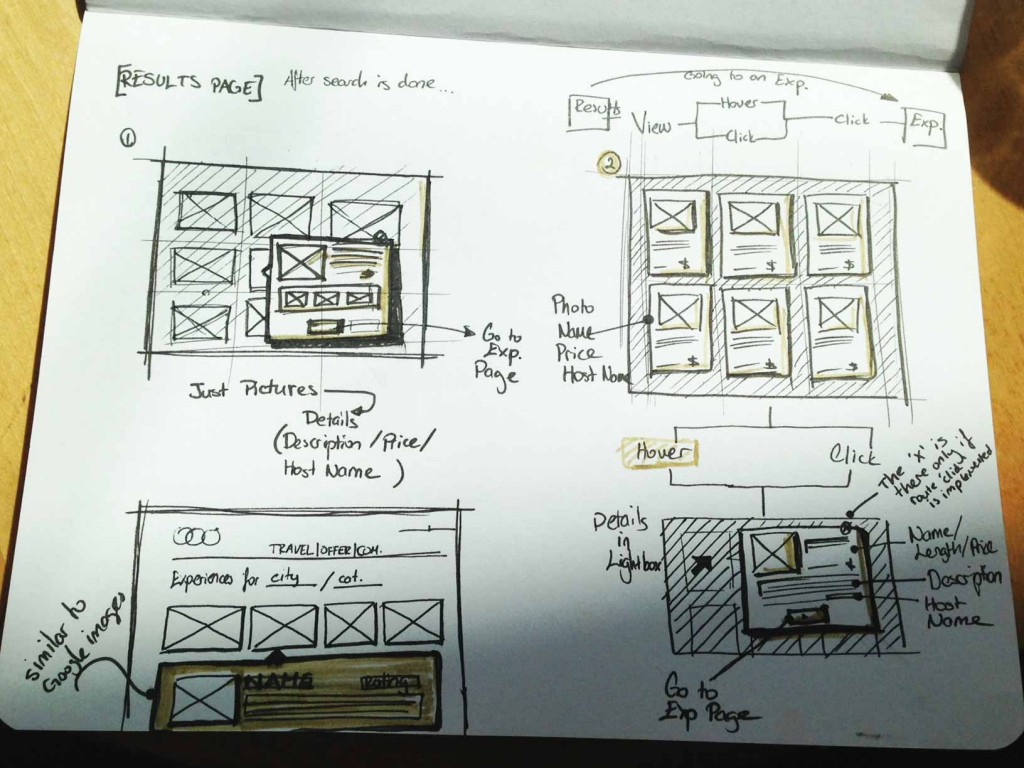 [RESULTS PAGE] After search is done...
Going to an Exp.
Results View Hover Click Click Exp.
1
Go to
Exp.
Page
Just Pictures
Details
(Description / Price /
Host Name )
TRAVEL/OFFER/COM.
Experiences for city / cat.
NAME Rating
similar to
Google images
2
$ $ $
$ $ $
Photo
Name
Price
Host Name
Hover Click
The 'X' is
there only if
route 'click'
is implemented
Details
in
Lightbox
$
Name/
Length/Price
Description
Host
Name
Go to
Exp Page